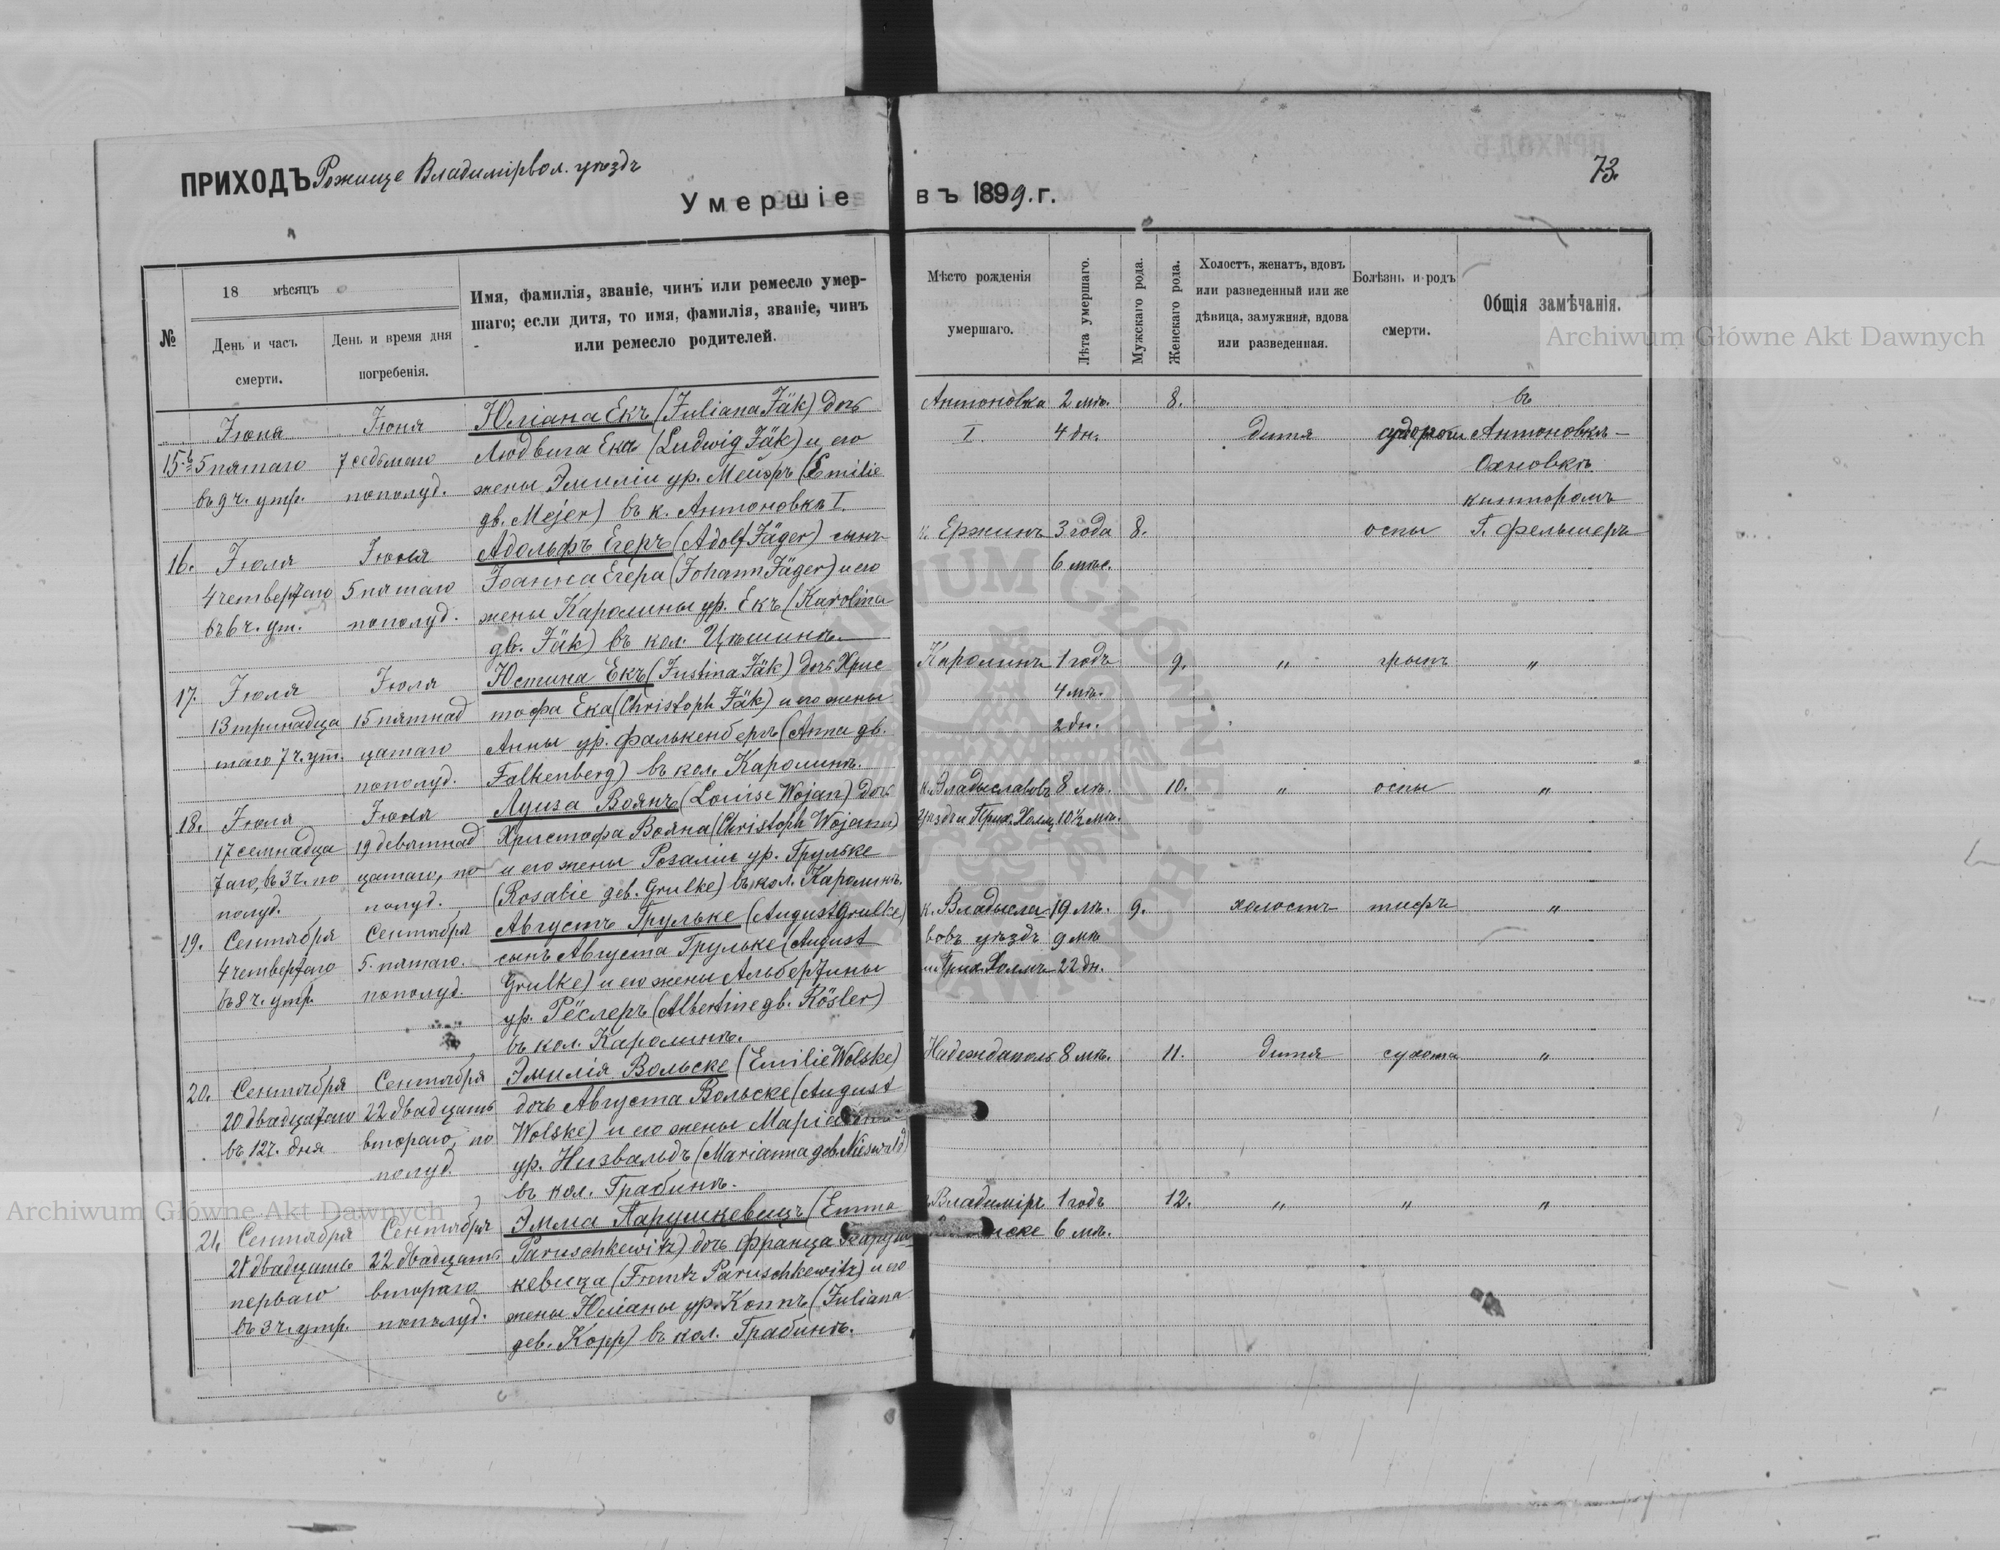 ПРИХОДЪ Рожище Владимірвол. уѣздъ
73.
Умершіе въ 1899. г.
№
18 мѣсяцъ
День и часъ смерти.
День и время дня погребенія.
Имя, фамилія, званіе, чинъ или ремесло умершаго; если дитя, то имя, фамилія, званіе, чинъ или ремесло родителей.
Мѣсто рожденія умершаго.
Лѣта умершаго.
Мужскаго рода.
Женскаго рода.
Холостъ, женатъ, вдовъ или разведенный или же дѣвица, замужняя, вдова или разведенная.
Болѣзнь и родъ смерти.
Общія замѣчанія.
Юліана Екъ (Juliana Jäk) дочь Антоновка 2 мѣс. 8. въ
Іюня Іюня Людвига Ека (Ludwig Jäk) и его I. 4 дн. дитя судороги Антоновкѣ-
15. 5 пятаго 7 седьмаго жены Эмиліи ур. Мейеръ (Emilie Охновкѣ
въ 9 ч. утр. пополуд. дв. Mejer) въ к. Антоновкѣ I. канторомъ
16. Іюля Іюля Адольфъ Егеръ (Adolf Jäger) сынъ к. Ержинъ 3 года 8. оспы Г. Фельшеръ
4 четвертаго 5 пятаго Іоанна Егера (Johann Jäger) и его 6 мѣс.
въ 6 ч. ут. пополуд. жены Каролины ур. Екъ (Karolina
дв. Jäk) въ кол. Цѣшинѣ.
17. Іюля Іюля Юстина Екъ (Justina Jäk) дочь Хрис Каролинъ 1 годъ 9. " "
13 тринадца 15 пятнад тофа Ека (Christoph Jäk) и его жены 4 мѣ.
таго 7 ч. ут. цатаго Анны ур. Фалькенберъ (Anna дв. 2 дн.
пополуд. Falkenberg) въ кол. Каролинѣ.
18. Іюля Іюля Луиза Воянъ (Louise Wojan) дочь к. Владыславовъ 8 лѣ. 10. " оспы "
17 семнадца 19 девятнад Христофа Вояна (Christoph Wojann) уѣзда и Прих. Холмъ 10½ мѣ.
таго, въ 3 ч. по цатаго, по и его жены Розаліи ур. Грульке
полуд. полуд. (Rosalie дев. Grulke) въ кол. Каролинѣ.
19. Сентября Сентября Августъ Грульке (August Grulke) к. Владысла 19 лѣ. 9. холостъ тифъ "
4 четвертаго 5. пятаго. сынъ Августа Грульке (August вовъ уѣздъ 9 мѣ
въ 8 ч. утр. пополуд. Grulke) и его жены Альбертины и Прих. Холмъ 22 дн.
ур. Рёслеръ (Albertine дв. Rösler)
въ кол. Каролинѣ.
20. Сентября Сентября Эмилія Вольске (Emilie Wolske) Надеждаполь 8 мѣ. 11. дитя сухота "
20 двадцатаго 22 двадцать дочь Августа Вольске (August
въ 12 ч. дня втораго, по Wolske) и его жены
полуд. ур. Низвальдъ (Marianna дев. Nieswald)
въ кол. Грабинѣ.
21. Сентября Сентября Эмма Парушкевицъ (Emma Владиміръ 1 годъ 12. " " "
21 двадцать 22 двадцать Paruschkewitz) дочь Франца Паруш 6 мѣ.
перваго втораго кевица (Frantz Paruschkewitz) и его
въ 3 ч. утр. пополуд. жены Юліаны ур. Коппъ (Juliana
дев. Kopp) въ кол. Грабинѣ.
Archiwum Główne Akt Dawnych
Archiwum Główne Akt Dawnych